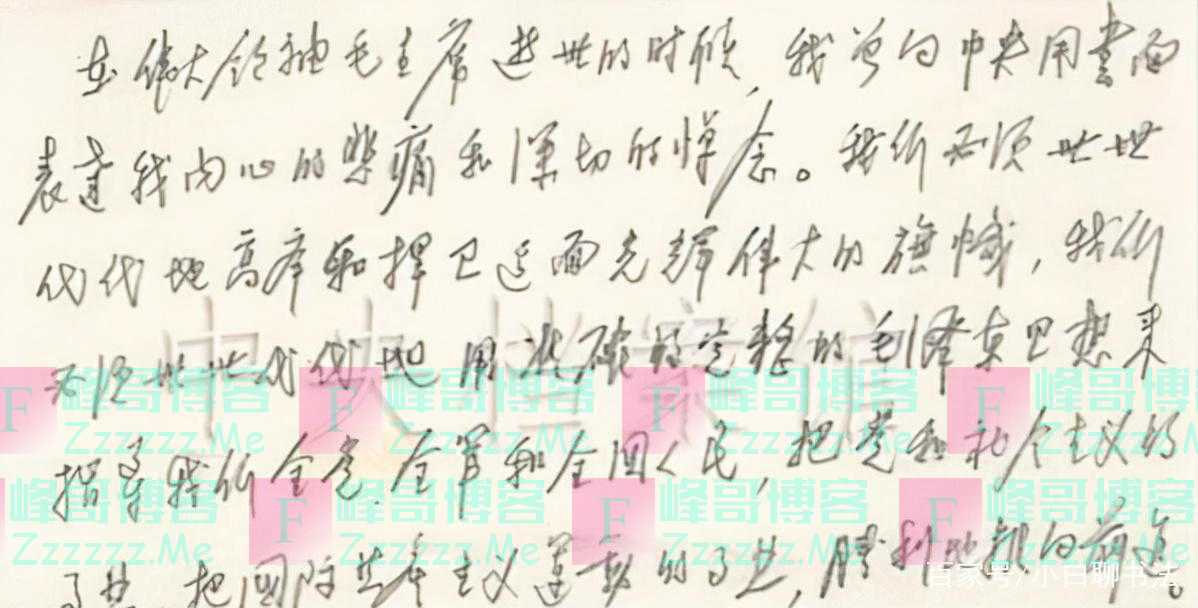 在伟大领袖毛主席逝世的时候，我曾向中央用书面
表达我内心的悲痛和深切的悼念。我们必须世世
代代地高举和捍卫这面光辉伟大的旗帜，我们
必须世世代代地用准确的完整的毛泽东思想来
指导我们全党、全军和全国人民，把党和社会主义的
事业，把国际共产主义运动的事业，胜利地推向前进。
中央档案馆
峰哥博客
Zzzzzz.Me
F
峰哥博客
Zzzzzz.Me
F
峰哥博客
Zzzzzz.Me
F
峰哥博客
Zzzzzz.Me
峰哥博客
Zzzzzz.Me
F
峰哥博客
Zzzzzz.Me
F
峰哥博客
Zzzzzz.Me
F
峰哥博客
Zzzzzz.Me
百家号/小白聊书法